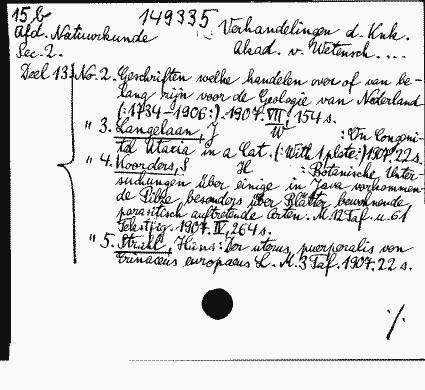 15 b 149335 Verhandelingen d. Knk.
Afd. Natuurkunde Akad. v. Wetensch....
Sec. 2.
Deel 13. No. 2. Geschriften welke handelen over of van be-
lang zijn voor de Geologie van Nederland
(:1734-1906:). 1907. VII, 154 s.
" 3. Langelaan, J W : On Congeni-
tal Ataxia in a Cat. (: With 1 plate:) 1907. 22 s.
" 4. Koorders, S H : Botanische Unter-
suchungen über einige in Java vorkommen-
de Pilze, besonders über Blätter bewohnende,
parasitisch auftretende Arten. M. 12 Taf. u. 61
Textfig. 1907. IV, 264 s.
" 5. Strahl, Hans: Der uterus puerperalis von
Erinaceus europaeus L. M. 3 Taf. 1907. 22 s.